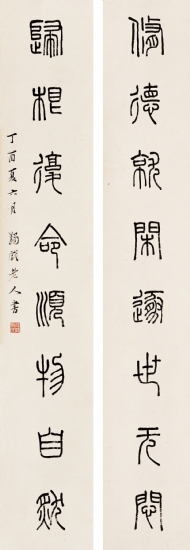 脩德就閑遯世无悶
歸根復命順物自然
丁酉夏六月 鵕䴊老人書